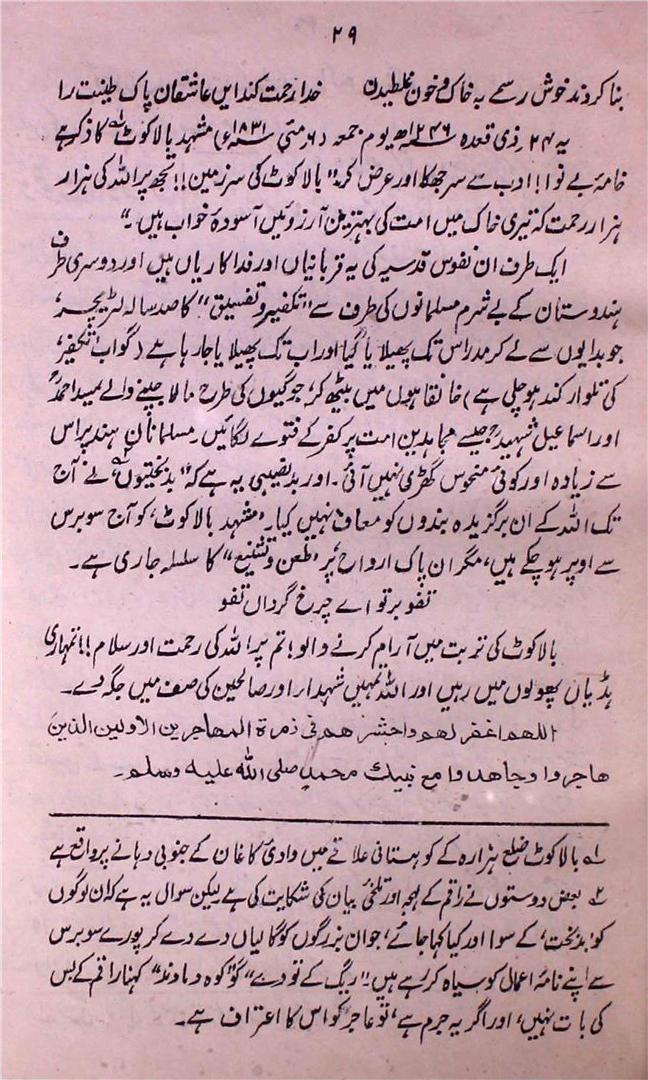 ۲۹
بنا کردند خوش رسمے بہ خاک و خون غلطیدن خدا رحمت کند ایں عاشقان پاک طینت را
یہ ۲۴ ذی قعدہ ۱۲۴۶ھ یوم جمعہ (۶ مئی ۱۸۳۱ء) مشہد بالا کوٹ۱؎ کا ذکر ہے
خامۂ بے نوا! ادب سے سر جھکا اور عرض کر "بالا کوٹ کی سرزمین!! تجھ پر اللہ کی ہزار
ہزار رحمت کہ تیری خاک میں امت کی بہترین آرزوئیں آسودۂ خواب ہیں۔"
ایک طرف ان نفوس قدسیہ کی یہ قربانیاں اور فداکاریاں ہیں اور دوسری طرف
ہندوستان کے بے شرم مسلمانوں کی طرف سے "تکفیر و تفسیق" کا صد سالہ لٹریچر،
جو بدایوں سے لے کر مدراس تک پھیلا یا گیا اور اب تک پھیلایا جا رہا ہے (گو اب 'تکفیر'
کی تلوار کند ہو چلی ہے) خانقاہوں میں بیٹھ کر، جوگیوں کی طرح مالا جپنے والے سید احمدؒ
اور اسماعیل شہیدؒ جیسے مجاہدین امت پر کفر کے فتوے لگائیں۔ مسلمانان ہند پر اس
سے زیادہ اور کوئی منحوس گھڑی نہیں آئی۔ اور بدنصیبی یہ ہے کہ "بدبختیوں"۲؎ نے آج
تک اللہ کے ان برگزیدہ بندوں کو معاف نہیں کیا۔ 'مشہد بالا کوٹ' کو آج سو برس
سے اوپر ہو چکے ہیں، مگر ان پاک ارواح پر 'طعن و تشنیع' کا سلسلہ جاری ہے۔
تفو بر تو اے چرخ گرداں تفو
بالا کوٹ کی تربت میں آرام کرنے والو! تم پر اللہ کی رحمت اور سلام!! تمہاری
ہڈیاں پھولوں میں رہیں اور اللہ تمہیں شہدار اور صالحین کی صف میں جگہ دے۔
اللهم اغفر لهم واحشرهم في زمرة المهاجرين الاولين الذين
هاجروا وجاهدوا مع نبيك محمد صلى الله عليه وسلم۔
۱؎ بالا کوٹ ضلع ہزارہ کے کوہستانی علاقے میں وادیٔ کاغان کے جنوبی دہانے پر واقع ہے
۲؎ بعض دوستوں نے راقم کے لہجہ اور تلخیٔ بیان کی شکایت کی ہے لیکن سوال یہ ہے کہ ان لوگوں
کو 'بدبخت' کے سوا اور کیا کہا جائے، جو ان بزرگوں کو گالیاں دے دے کر پورے سو برس
سے اپنے نامۂ اعمالی کو سیاہ کر رہے ہیں۔ "ریگ کے تودے" کو "کوہ دماوند" کہنا راقم کے بس
کی بات نہیں، اور اگر یہ جرم ہے، تو عاجز کو اس کا اعتراف ہے۔